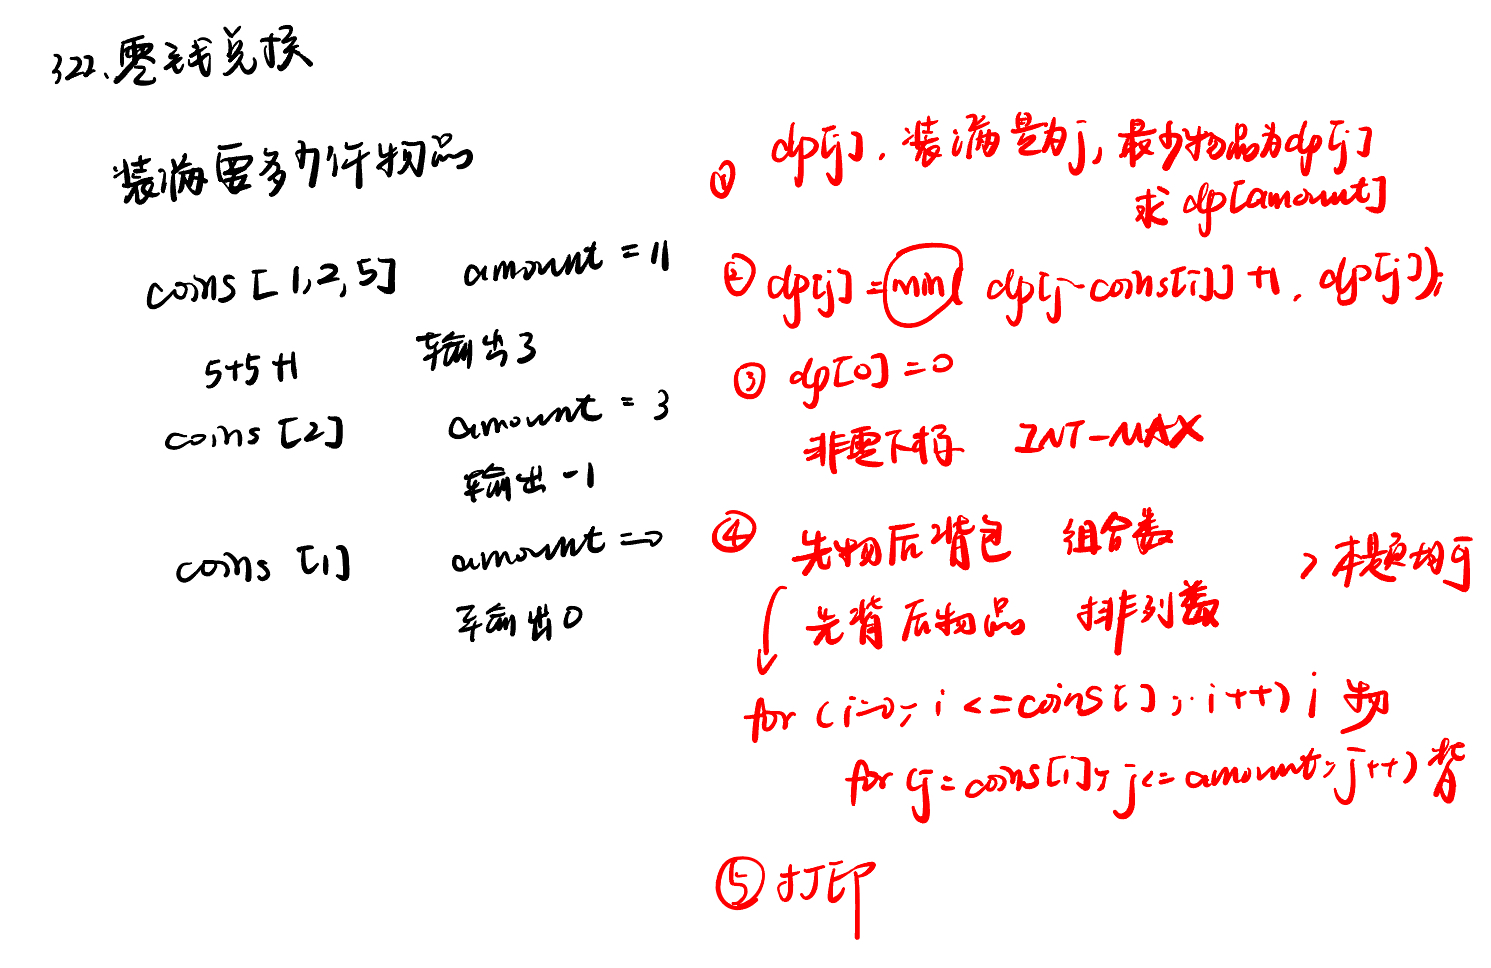 322.零钱兑换
装满需多少件物品
coins [1,2,5] amount = 11
5+5+1 输出3
coins [2] amount = 3
输出 -1
coins [1] amount = 0
输出0
① dp[j]. 装满是为j, 最少物品为dp[j]
求 dp[amount]
② dp[j] = min( dp[j-coins[i]] +1, dp[j]);
③ dp[0] = 0
非零下标 INT-MAX
④ 先物后背包 组合数
先背后物品 排列数 > 本题均可
for (i=0; i <= coins[]; i++) i 物
for (j = coins[i]; j <= amount; j++) 背
⑤ 打印